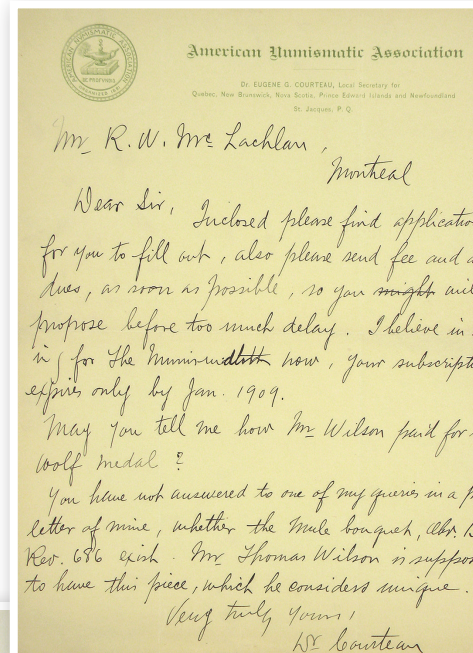 AMERICAN NUMISMATIC ASSOCIATION
American Numismatic Association
Dr. EUGENE G. COURTEAU, Local Secretary for
Quebec, New Brunswick, Nova Scotia, Prince Edward Islands and Newfoundland
St. Jacques, P. Q.
Mr R. W. Mc Lachlan,
Montreal
Dear Sir, Inclosed please find applicatio
for you to fill out, also please send fee and
dues, as soon as possible, so you might
propose before too much delay. I believe in
in for The now, your subscript
expires only by Jan. 1909.
May you tell me how Mr Wilson paid for
wolf medal ?
You have not answered to one of my queries in a
letter of mine, whether the Mule bouquet, Obv.
Rev. 686 exist. Mr Thomas Wilson is suppos
to have this piece, which he considers unique.
Very truly yours,
Dr Courteau